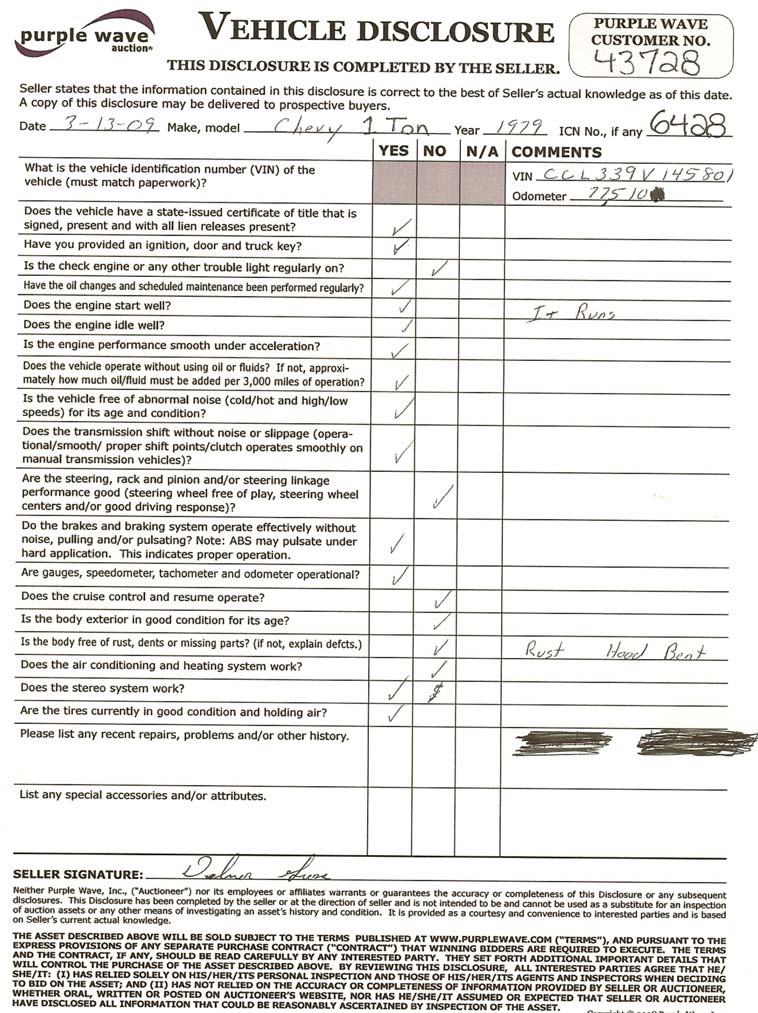 purple wave
auction®
VEHICLE DISCLOSURE
THIS DISCLOSURE IS COMPLETED BY THE SELLER.
PURPLE WAVE
CUSTOMER NO.
43728
Seller states that the information contained in this disclosure is correct to the best of Seller's actual knowledge as of this date.
A copy of this disclosure may be delivered to prospective buyers.
Date 3-13-09 Make, model Chevy 1 Ton Year 1979 ICN No., if any 6428
YES NO N/A COMMENTS
What is the vehicle identification number (VIN) of the
vehicle (must match paperwork)?
VIN CCL339V145801
Odometer 77510
Does the vehicle have a state-issued certificate of title that is
signed, present and with all lien releases present? ✓
Have you provided an ignition, door and truck key? ✓
Is the check engine or any other trouble light regularly on? ✓
Have the oil changes and scheduled maintenance been performed regularly? ✓
Does the engine start well? ✓ It Runs
Does the engine idle well? ✓
Is the engine performance smooth under acceleration? ✓
Does the vehicle operate without using oil or fluids? If not, approxi-
mately how much oil/fluid must be added per 3,000 miles of operation? ✓
Is the vehicle free of abnormal noise (cold/hot and high/low
speeds) for its age and condition? ✓
Does the transmission shift without noise or slippage (opera-
tional/smooth/ proper shift points/clutch operates smoothly on
manual transmission vehicles)? ✓
Are the steering, rack and pinion and/or steering linkage
performance good (steering wheel free of play, steering wheel
centers and/or good driving response)? ✓
Do the brakes and braking system operate effectively without
noise, pulling and/or pulsating? Note: ABS may pulsate under
hard application. This indicates proper operation. ✓
Are gauges, speedometer, tachometer and odometer operational? ✓
Does the cruise control and resume operate? ✓
Is the body exterior in good condition for its age? ✓
Is the body free of rust, dents or missing parts? (if not, explain defcts.) ✓ Rust Hood Bent
Does the air conditioning and heating system work? ✓
Does the stereo system work? ✓
Are the tires currently in good condition and holding air? ✓
Please list any recent repairs, problems and/or other history.
List any special accessories and/or attributes.
SELLER SIGNATURE: Delmer
Neither Purple Wave, Inc., ("Auctioneer") nor its employees or affiliates warrants or guarantees the accuracy or completeness of this Disclosure or any subsequent
disclosures. This Disclosure has been completed by the seller or at the direction of seller and is not intended to be and cannot be used as a substitute for an inspection
of auction assets or any other means of investigating an asset's history and condition. It is provided as a courtesy and convenience to interested parties and is based
on Seller's current actual knowledge.
THE ASSET DESCRIBED ABOVE WILL BE SOLD SUBJECT TO THE TERMS PUBLISHED AT WWW.PURPLEWAVE.COM ("TERMS"), AND PURSUANT TO THE
EXPRESS PROVISIONS OF ANY SEPARATE PURCHASE CONTRACT ("CONTRACT") THAT WINNING BIDDERS ARE REQUIRED TO EXECUTE. THE TERMS
AND THE CONTRACT, IF ANY, SHOULD BE READ CAREFULLY BY ANY INTERESTED PARTY. THEY SET FORTH ADDITIONAL IMPORTANT DETAILS THAT
WILL CONTROL THE PURCHASE OF THE ASSET DESCRIBED ABOVE. BY REVIEWING THIS DISCLOSURE, ALL INTERESTED PARTIES AGREE THAT HE/
SHE/IT: (I) HAS RELIED SOLELY ON HIS/HER/ITS PERSONAL INSPECTION AND THOSE OF HIS/HER/ITS AGENTS AND INSPECTORS WHEN DECIDING
TO BID ON THE ASSET; AND (II) HAS NOT RELIED ON THE ACCURACY OR COMPLETENESS OF INFORMATION PROVIDED BY SELLER OR AUCTIONEER,
WHETHER ORAL, WRITTEN OR POSTED ON AUCTIONEER'S WEBSITE, NOR HAS HE/SHE/IT ASSUMED OR EXPECTED THAT SELLER OR AUCTIONEER
HAVE DISCLOSED ALL INFORMATION THAT COULD BE REASONABLY ASCERTAINED BY INSPECTION OF THE ASSET.